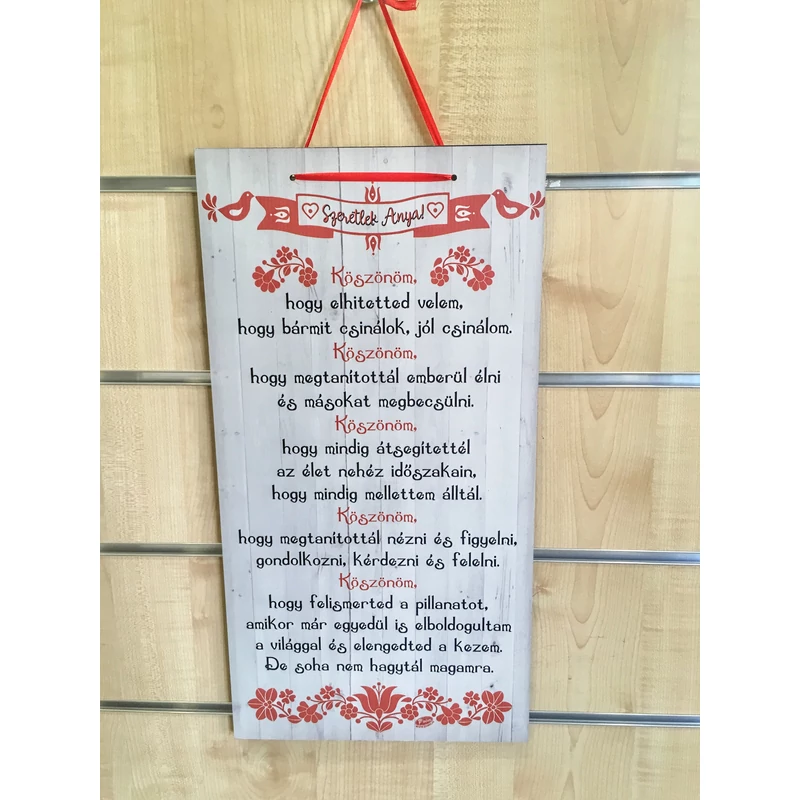 Szeretlek Anya!
Köszönöm,
hogy elhitetted velem,
hogy bármit csinálok, jól csinálom.
Köszönöm,
hogy megtanítottál emberül élni
és másokat megbecsülni.
Köszönöm,
hogy mindig átsegítettél
az élet nehéz időszakain,
hogy mindig mellettem álltál.
Köszönöm,
hogy megtanítottál nézni és figyelni,
gondolkozni, kérdezni és felelni.
Köszönöm,
hogy felismerted a pillanatot,
amikor már egyedül is elboldogultam
a világgal és elengedted a kezem.
De soha nem hagytál magamra.